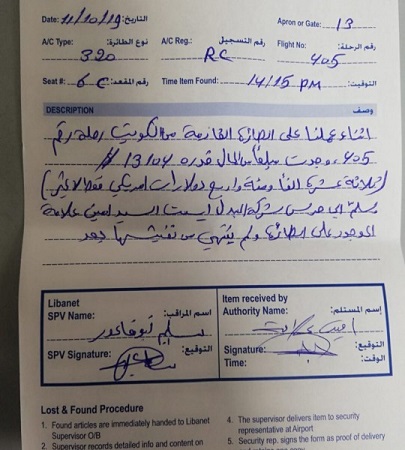 Date: 11/10/19 التاريخ: Apron or Gate: 13
A/C Type: نوع الطائرة: A/C Reg.: رقم التسجيل Flight No: رقم الرحلة:
320 RC 405
Seat #: 6 C رقم المقعد: Time Item Found: 14/15 PM التوقيت:
DESCRIPTION وصف
اثناء عملنا على الطائرة القادمة من الكويت رحلة رقم
405 وجدت مبلغاً من المال قدره 13104 $
(ثلاثة عشرة الفاً ومئة واربع دولارات اميركي فقط لاغير)
السيد امين علامة
الموجود على الطائرة ولم ينتهي من تفتيشها بعد
Libanet
SPV Name: اسم المراقب:
Item received by
Authority Name: إسم المستلم:
SPV Signature: التوقيع:
Signature: التوقيع:
Time: الوقت:
Lost & Found Procedure
1. Found articles are immediately handed to Libanet
Supervisor O/B
2. Supervisor records detailed info and content on
4. The supervisor delivers item to security
representative at Airport
5. Security rep. signs the form as proof of delivery